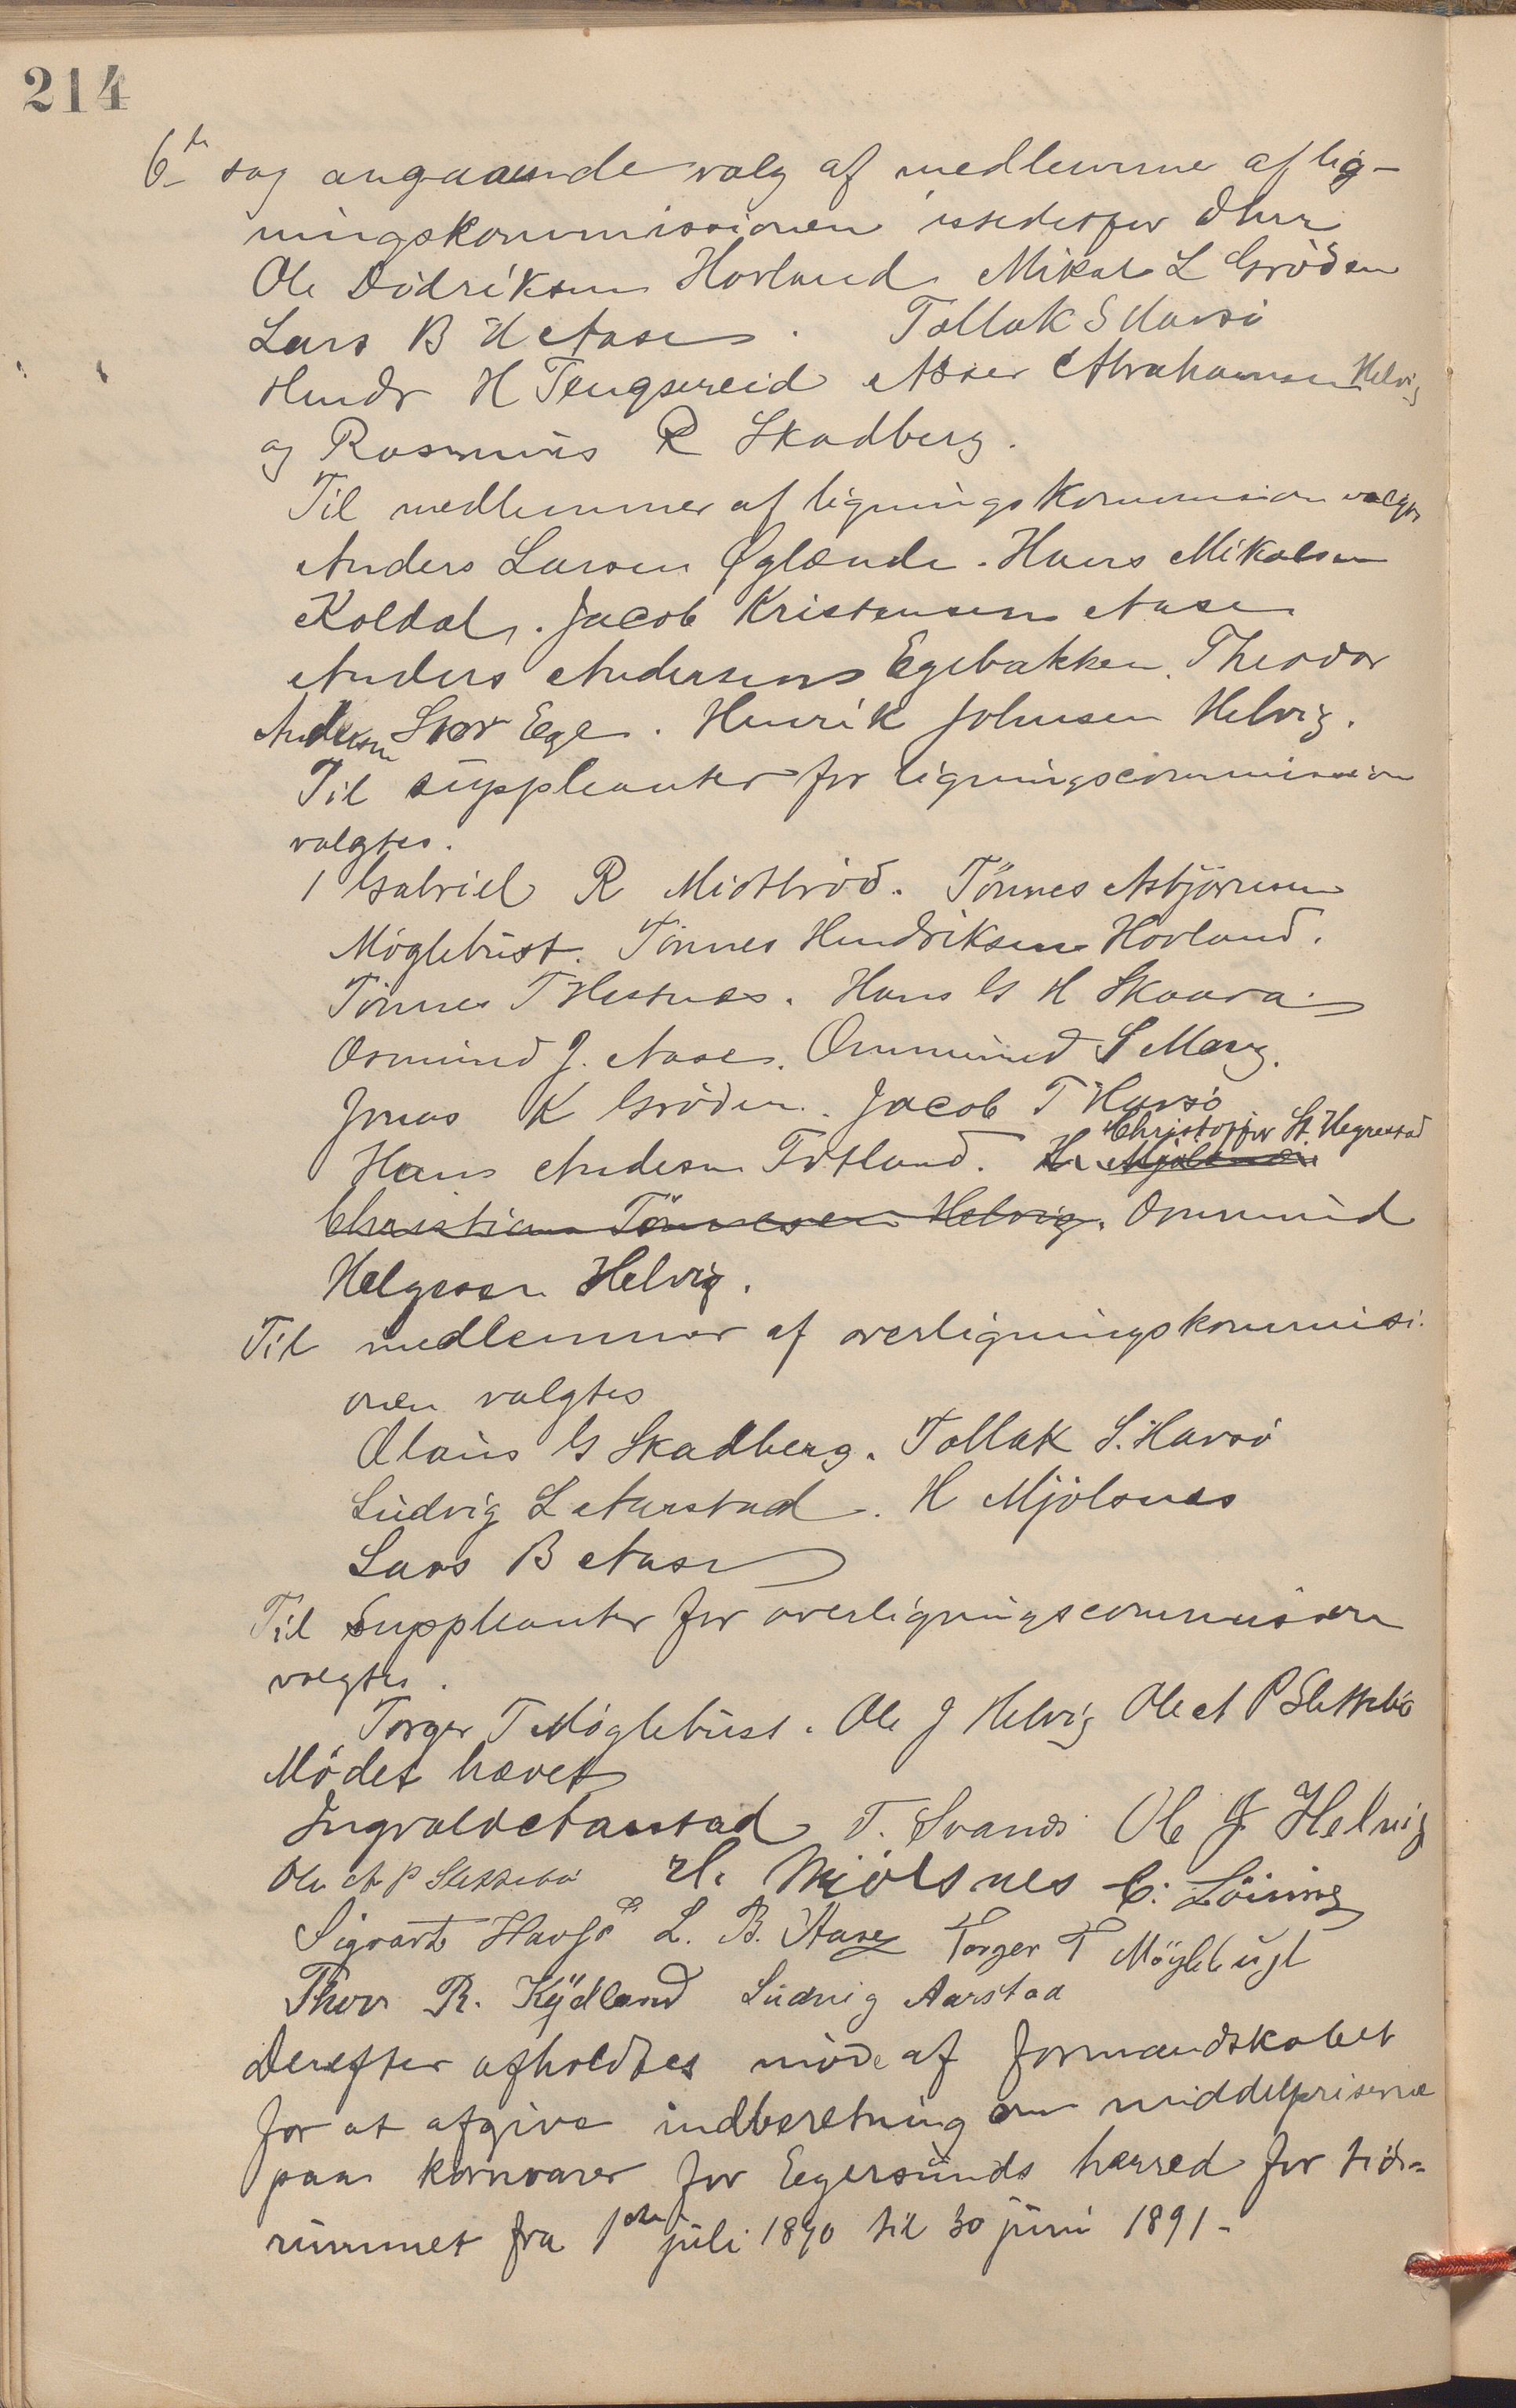 214
6te sag angaaende valg af medlemme af lig-
ningskommissionen istedetfor dhrr
Ole Didriksen Hovland Mikal L Gröden
Lars B Aase. Tollak S Havsö
Hendr H Tengsereid Asser Abrahamsen Helvig
og Rasmus R Skadberg.
Til medlemmer af ligningskommission valgtes
Anders Larsen Øglænde. Hans Mikalsen
Koldal. Jacob Kristensen Aase
Anders Andersens Egebakken. Theodor
Andersen Stor Ege. Henrik Johnsen Helvig.
Til suppleanter for ligningscommission
valgtes.
1 Gabriel R Midtbröd. Tönnes Asbjörnsen
Möglebust. Tönnes Hendriksen Hovland.
Tönnes T Hestnes. Hans G H Skaara
Osmund J. Aase. Ommund S Mong.
Jonas K Gröden. Jacob T Havsö
Hans Andersn Totland. H. Mjölsnes Christoffer St. Hegrestad
Christian Tönnesen Helvig. Ommund
Helgesen Helvig.
Til medlemmer af overligningskommissi-
onen valgtes
Olaus G Skadberg. Tollak S. Havsö
Ludvig L Aarstad. H Mjölsnes
Lars B Aase
Til Suppleanter for overligningscommissionen
valgtes.
Torger T Möglebust. Ole J Helvig Ole A P Slettebö
Mödet hævet
Ingvald Aarstad T. Svanes Ole J Helvig
Ole A P Slettebö H. Mjölsnes C. Löining
Sigvart Havsö L. B. Aase Torger T Möglebust
Thor R. Kydland Ludvig Aarstad
Derefter afholdtes möde af formandskabet
for at afgive indberetning om middelpriserne
paa kornvarer for Egersunds herred for tids-
rummet fra 1ste juli 1890 til 30 juni 1891-